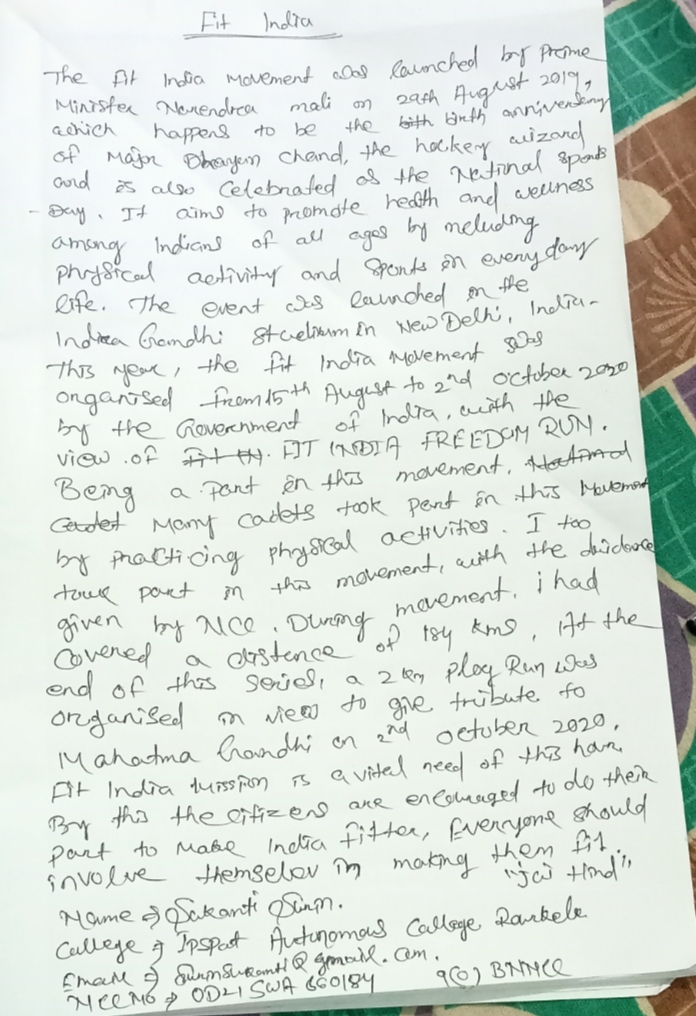 Fit India
The Fit India Movement was launched by Prime
Minister Narendra modi on 29th August 2019,
which happens to be the birth anniversary
of Major Dhayan chand, the hockey wizard
and is also Celebrated as the National sports
- Day. It aims to promote health and wellness
among Indians of all ages by including
physical activity and Sports in everyday
life. The event was launched in the
Indira Gandhi Stadium in New Delhi, India-
This year, the fit India Movement was
organised from 15th August to 2nd october 2020
by the Government of India, with the
view of FIT INDIA FREEDOM RUN.
Being a part in this movement,
Many cadets took part in this Movement
by practicing physical activities. I too
took part in this movement, with the guidance
given by NCC. During movement, i had
covered a distence of 184 kms, At the
end of this series, a 2 km Plog Run was
organised in view to give tribute to
Mahatma Gandhi on 2nd october 2020.
Fit India Mission is a vital need of this
By this the citizens are encouraged to do their
part to Make India fitter, Everyone should
involve themselev in making them fit.
"Jai Hind",
Name → Sukanti
College → Ispat Autonomous College Rourkela
Email → @gmail.com.
NCC NO → OD21 SWA 660184 9(O) BNNCC